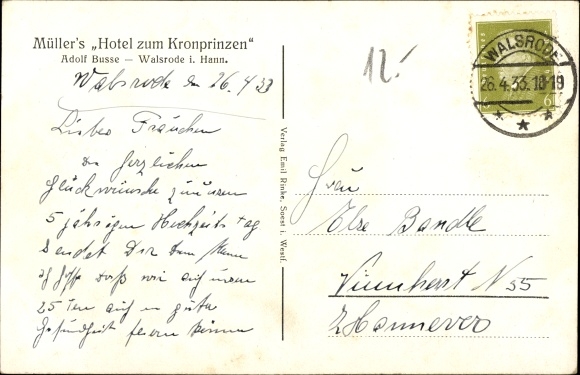 Müller's „Hotel zum Kronprinzen"
Adolf Busse — Walsrode i. Hann.
Walsrode den 26.4.33
Liebes Frauchen
herzlichen
Glückwünsche zu unserem
5 jährigen Hochzeitstag
sendet Dir Dein Mann
ich hoffe daß wir auch unseren
25 ten auch in guter
Gesundheit feiern können
Verlag Emil Rinke, Soest i. Westf.
12.-
WALSRODE
26.4.33.18-19
6
Frau
Else Bandke
Vinnhorst N 55
Hannover